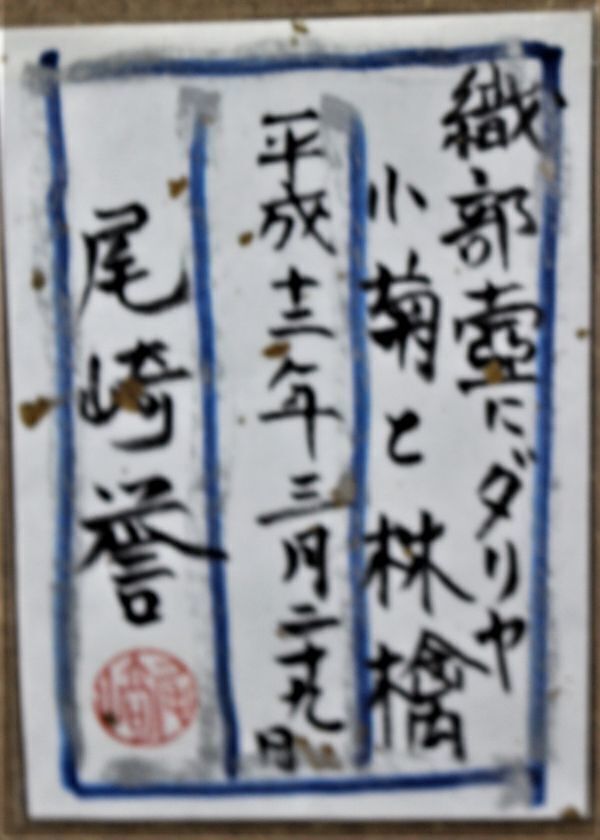 織部壺にダリヤ
小菊と林檎
平成十三年三月二十九日
尾崎誉